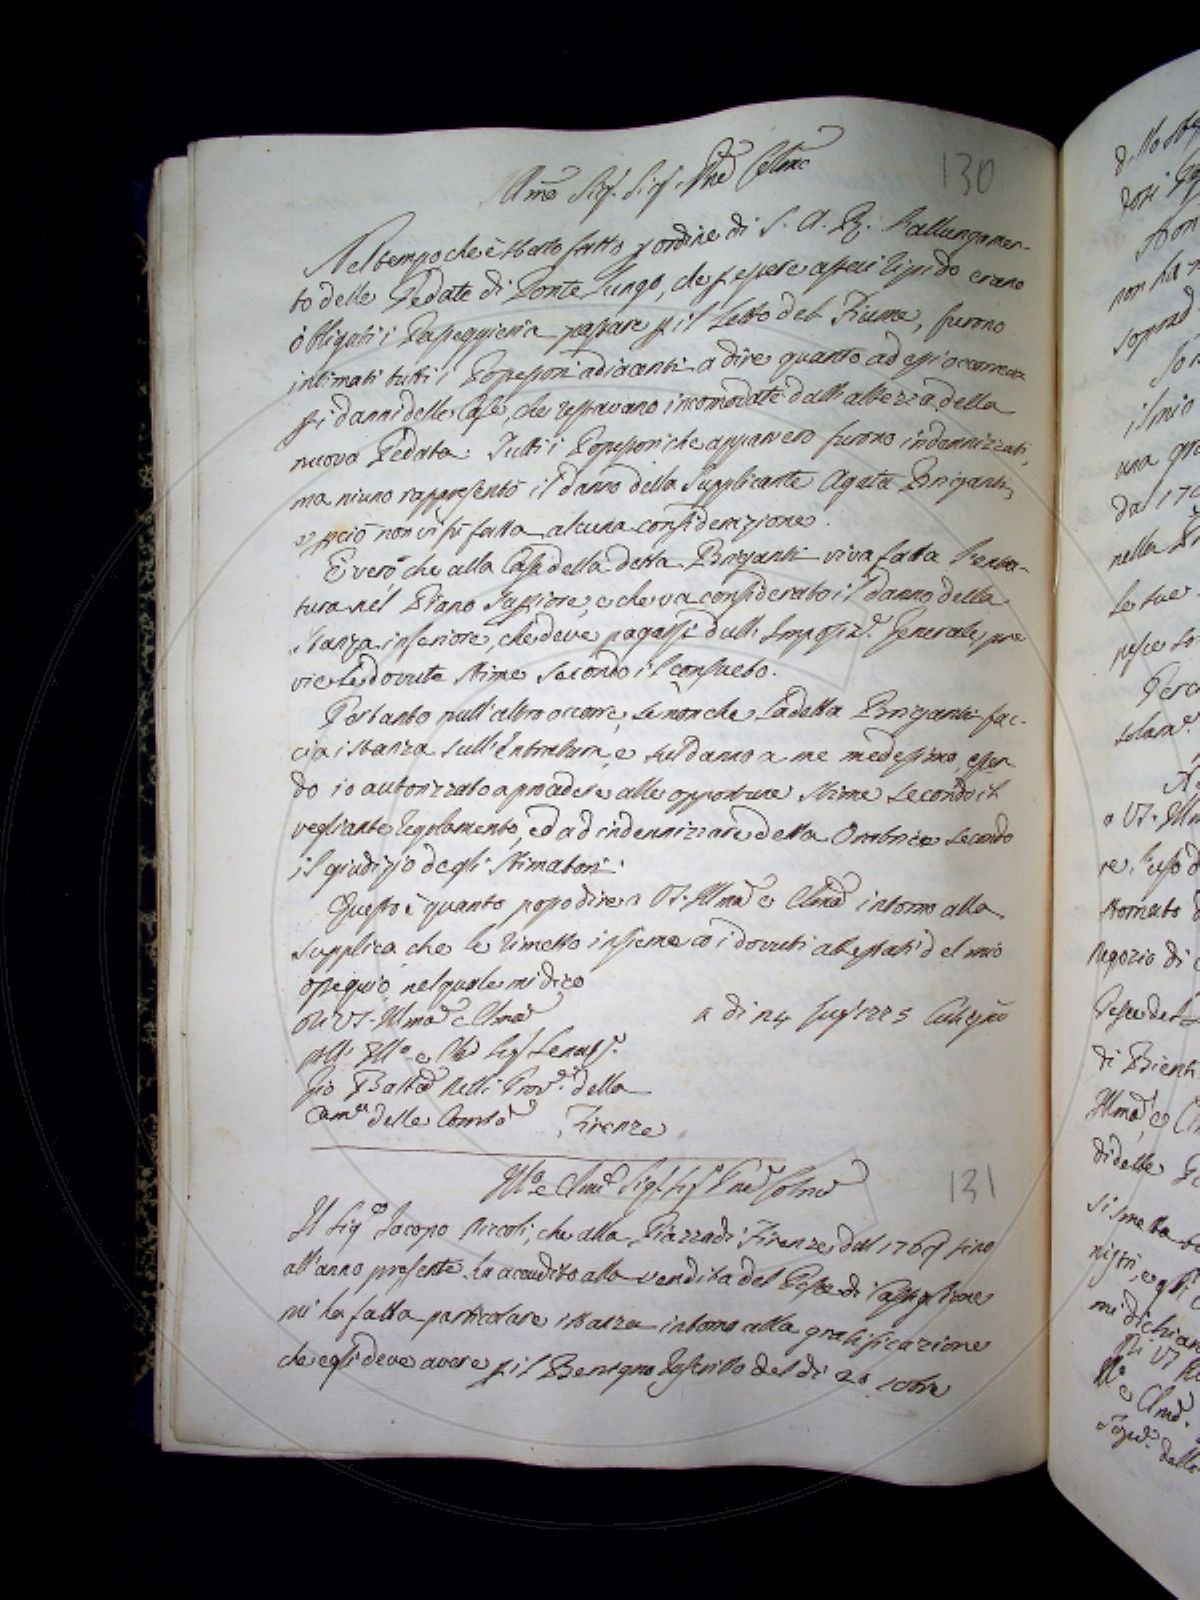 130
Nel tempo che è stato fatto p ordine di S. A. R. l'allungamen-
to delle Pedate di Ponte Lungo, che p essere assai ripido erano
obbligati i Passeggieri a passare p il Letto del Fiume, furono
intimati tutti i Possessori adiacenti a dire quanto ad essi occorreva
p i danni delle Case, che restavano incomodate dall'altezza della
nuova Pedata. Tutti i Possessori che apparvero furono indennizzati,
ma niuno rappresentò il danno della Supplicante Agata Briganti,
e p ciò non vi fù fatta alcuna considerazione.
È vero che alla Casa della detta Briganti vi va fatta l'entra-
tura nel Piano Superiore, e che va considerato il danno della
stanza inferiore, che deve pagarsi dall' Imposiz.e Generale, pre
vie le dovute stime secondo il consueto.
Pertanto null'altro occorre, se non che la detta Briganti fac-
cia istanza sull'entratura, e sul danno a me medesimo, essen-
do io autorizzato a procedere alle opportune stime secondo il
vegliante regolamento, ed ad indennizzare detta Oratrice secondo
il giudizio degli stimatori.
Questo è quanto posso dire a VS. Illma e Clma intorno alla
supplica che le rimetto insieme co i dovuti attestati del mio
ossequio, nel quale mi dico
Di VS. Illma e Clma
a di 24 Lug.
Gio Batta Nelli Prov.e della
Cam.a delle Comtà Firenze
131
Il Sig.re Jacopo Niccoli, che alla Piazza di Firenze dal 1769 sino
all'anno presente ha accudito alla vendita del Pesce di Castiglione
mi ha fatta particolare istanza intorno alla gratificazione
che egli deve avere p il Benigno Rescritto del dì 20 8bre